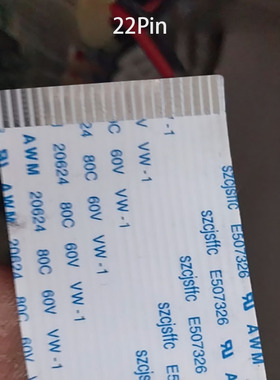 22Pin
AWM 20624 80C 60V VW-1
AWM 20624 80C 60V VW-1
20624 80C 60V VW-1
24 80C 60V VW-1
V VW-1
-1
szcjsffc E507326 AWM
szcjsffc E507326
szcjsffc E507326
szcjsffc